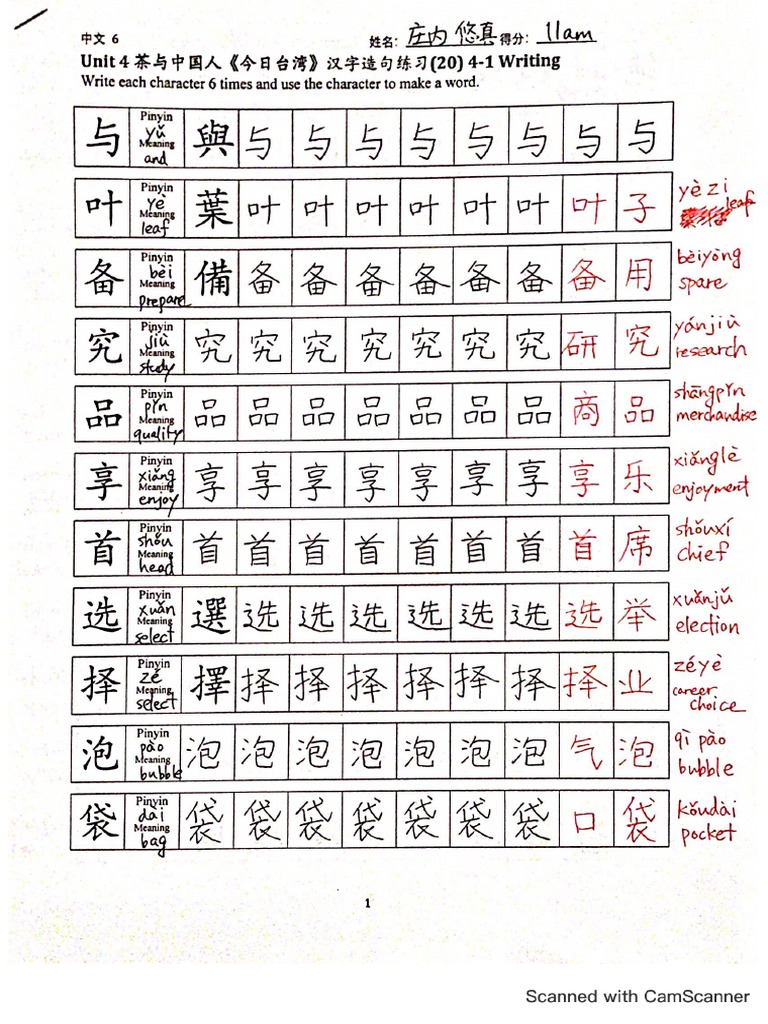 中文 6
姓名: 庄内 悠真 得分: 11am
Unit 4 茶与中国人《今日台湾》汉字造句练习(20) 4-1 Writing
Write each character 6 times and use the character to make a word.
与 Pinyin yǔ Meaning and 與 与 与 与 与 与 与 与 与
叶 Pinyin yè Meaning leaf 葉 叶 叶 叶 叶 叶 叶 叶 子 yè zi leaf
备 Pinyin bèi Meaning prepare 備 备 备 备 备 备 备 备 用 bèiyòng spare
究 Pinyin jiù Meaning study 究 究 究 究 究 究 究 研 究 yánjiù research
品 Pinyin pǐn Meaning quality 品 品 品 品 品 品 品 商 品 shāngpǐn merchandise
享 Pinyin xiǎng Meaning enjoy 享 享 享 享 享 享 享 享 乐 xiǎnglè enjoyment
首 Pinyin shǒu Meaning head 首 首 首 首 首 首 首 首 席 shǒuxí chief
选 Pinyin xuǎn Meaning select 選 选 选 选 选 选 选 选 举 xuǎnjǔ election
择 Pinyin zé Meaning select 擇 择 择 择 择 择 择 择 业 zéyè career choice
泡 Pinyin pào Meaning bubble 泡 泡 泡 泡 泡 泡 泡 气 泡 qì pào bubble
袋 Pinyin dài Meaning bag 袋 袋 袋 袋 袋 袋 袋 口 袋 kǒudài pocket
1
Scanned with CamScanner